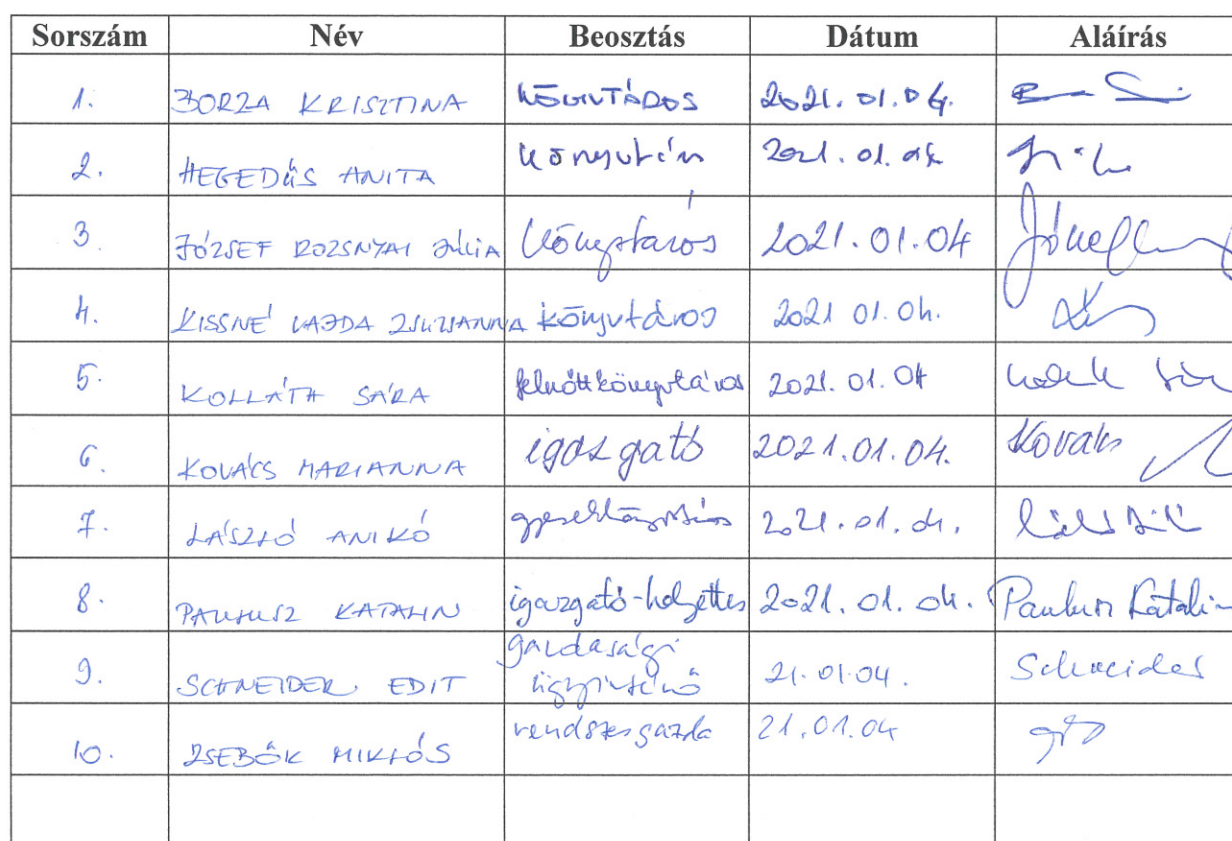 Sorszám Név Beosztás Dátum Aláírás
1. BORZA KRISZTINA KÖNYVTÁROS 2021. 01. 04.
2. HEGEDŰS ANITA könyvtáros 2021. 01. 04
3. JÓZSEF ROZSNYAI JÚLIA könyvtáros 2021. 01. 04
4. KISSNÉ VAJDA ZSUZSANNA könyvtáros 2021 01. 04.
5. KOLLÁTH SÁRA felnőttkönyvtáros 2021. 01. 04
6. KOVÁCS MARIANNA igazgató 2021.01.04. Kovács
7. LÁSZLÓ ANIKÓ 2021. 01. 04.
8. PAULUSZ KATALIN igazgató-helyettes 2021. 01. 04. Paulusz Katalin
9. SCHNEIDER EDIT gazdasági
ügyintéző 21.01.04. Schneider
10. ZSEBŐK MIKLÓS rendszergazda 21.01.04